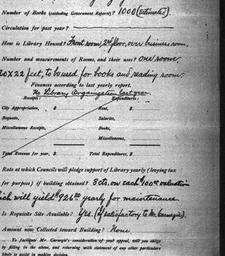 Number of Books (excluding Government Reports)? 1000 (estimated)
Circulation for past year?
How is Library Housed? Front room, 2nd floor, over business room,
Number and measurements of Rooms, and their uses? one room,
20 x 22 feet, to be used for books and reading room.
Finances according to last yearly report.
No Library Organization last year
Receipts: Expenditures:
City Appropriation, $ Rent, $
Bequests, Salaries,
Miscellaneous Receipts, Books,
Miscellaneous,
Total Revenue for year, $ Total Expenditures, $
Rate at which Councils will pledge support of Library yearly (levying tax
for purpose) if building obtained? 8 cts. on each $100.00 valuation
which will yield $926.00 yearly for maintenance
Is Requisite Site Available? Yes. (if satisfactory to Mr. Carnegie).
Amount now Collected toward Building? None
To facilitate Mr. Carnegie's consideration of your appeal, will you oblige
by filling in the above, and returning with statement of any other particulars
likely to assist in making decision.